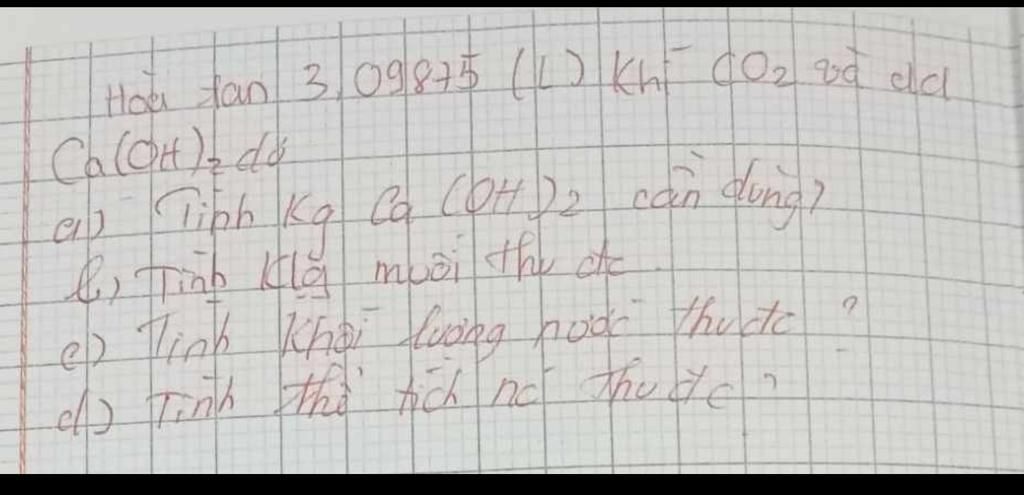 Hoà tan 3,09875 (L) Khí CO2 và dd
Ca(OH)2 dư
a) Tính Kg Ca(OH)2 cần dùng?
b) Tính Klg muối thu đc
c) Tính khối lượng nước thu đc?
d) Tính thể tích nc thu đc?